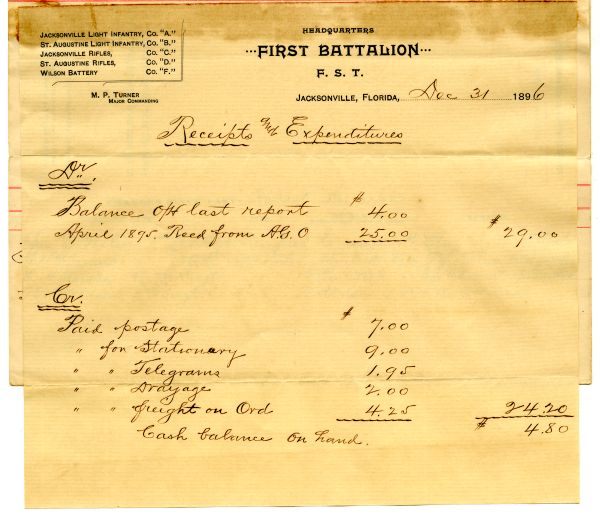 JACKSONVILLE LIGHT INFANTRY, CO. "A."
ST. AUGUSTINE LIGHT INFANTRY, CO. "B."
JACKSONVILLE RIFLES, CO. "C."
ST. AUGUSTINE RIFLES, CO. "D."
WILSON BATTERY CO. "F."
M. P. TURNER
MAJOR COMMANDING
HEADQUARTERS
FIRST BATTALION
F. S. T.
JACKSONVILLE, FLORIDA, Dec 31 1896
Receipts and Expenditures
Dr.
Balance O/H last report $ 4.00
April 1895. Recd from A.G.O 25.00 $ 29.00
Cr.
Paid postage $ 7.00
" for Stationary 9.00
" " Telegrams 1.95
" " Drayage 2.00
" " freight on Ord 4.25 24.20
Cash balance on hand. $ 4.80